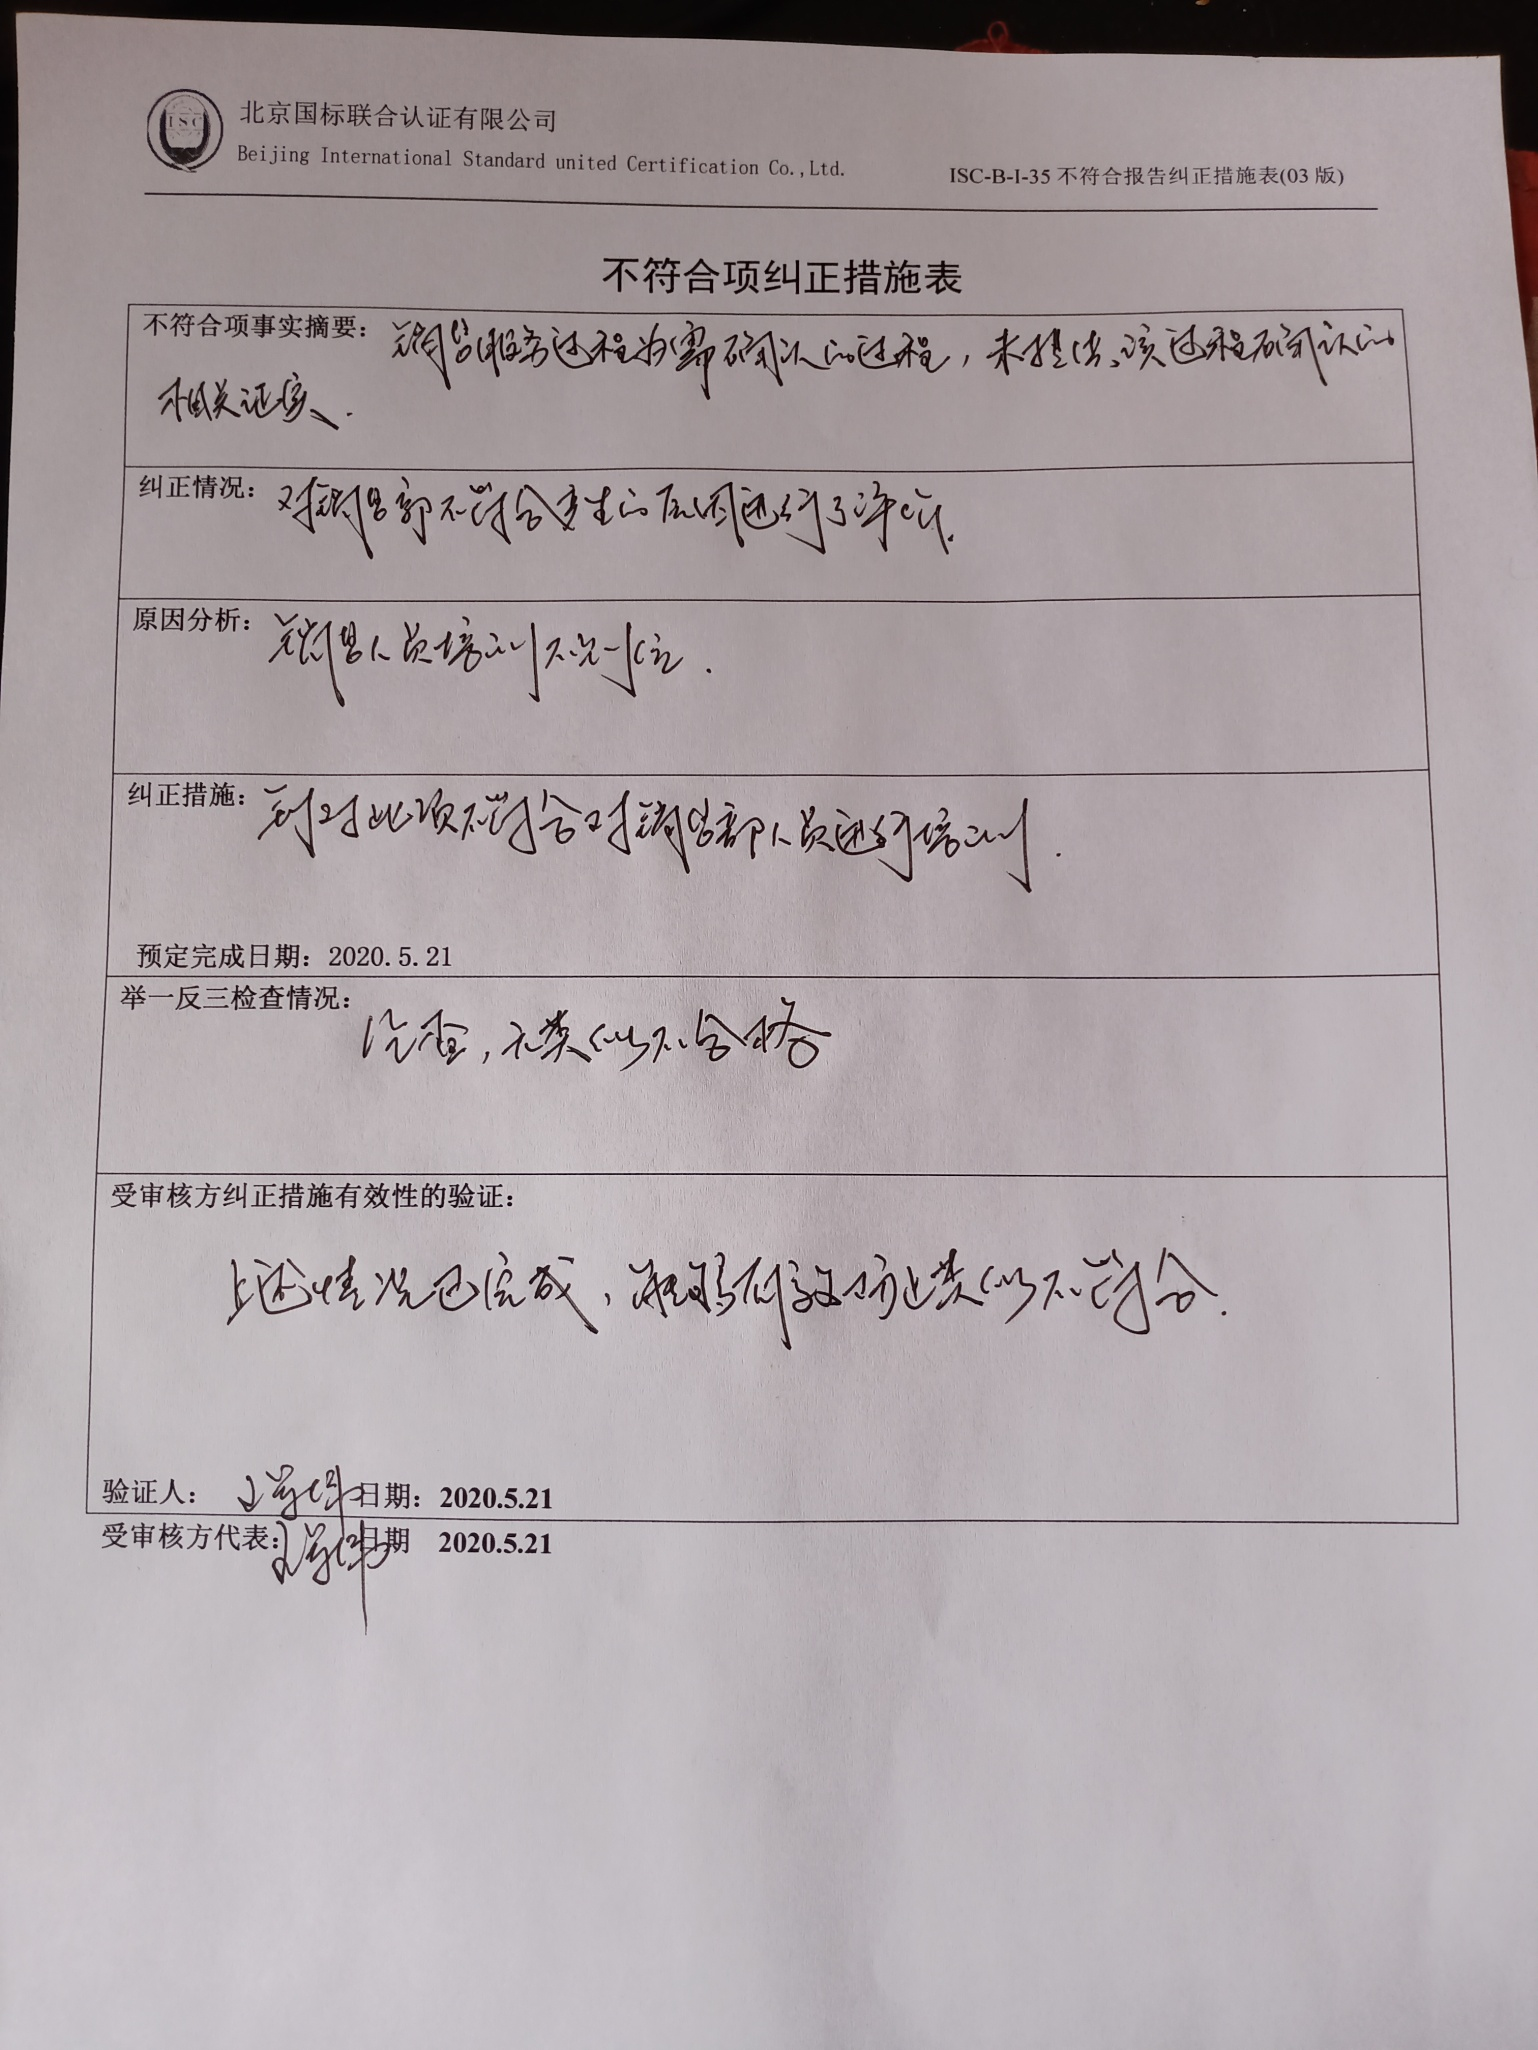 ISC
北京国标联合认证有限公司
Beijing International Standard united Certification Co.,Ltd.
ISC-B-I-35 不符合报告纠正措施表(03 版)
不符合项纠正措施表
不符合项事实摘要：销售服务过程为需确认的过程，未提供该过程确认的
相关证实、.
纠正情况：对销售部不符合产生的原因进行了评审.
原因分析：销售人员培训不到位.
纠正措施：针对此项不符合对销售部人员进行培训.
预定完成日期：2020.5.21
举一反三检查情况：
经查，无类似不合格
受审核方纠正措施有效性的验证：
上述情况已完成，能够有效防止类似不符合.
验证人： 日期：2020.5.21
受审核方代表： 日期 2020.5.21